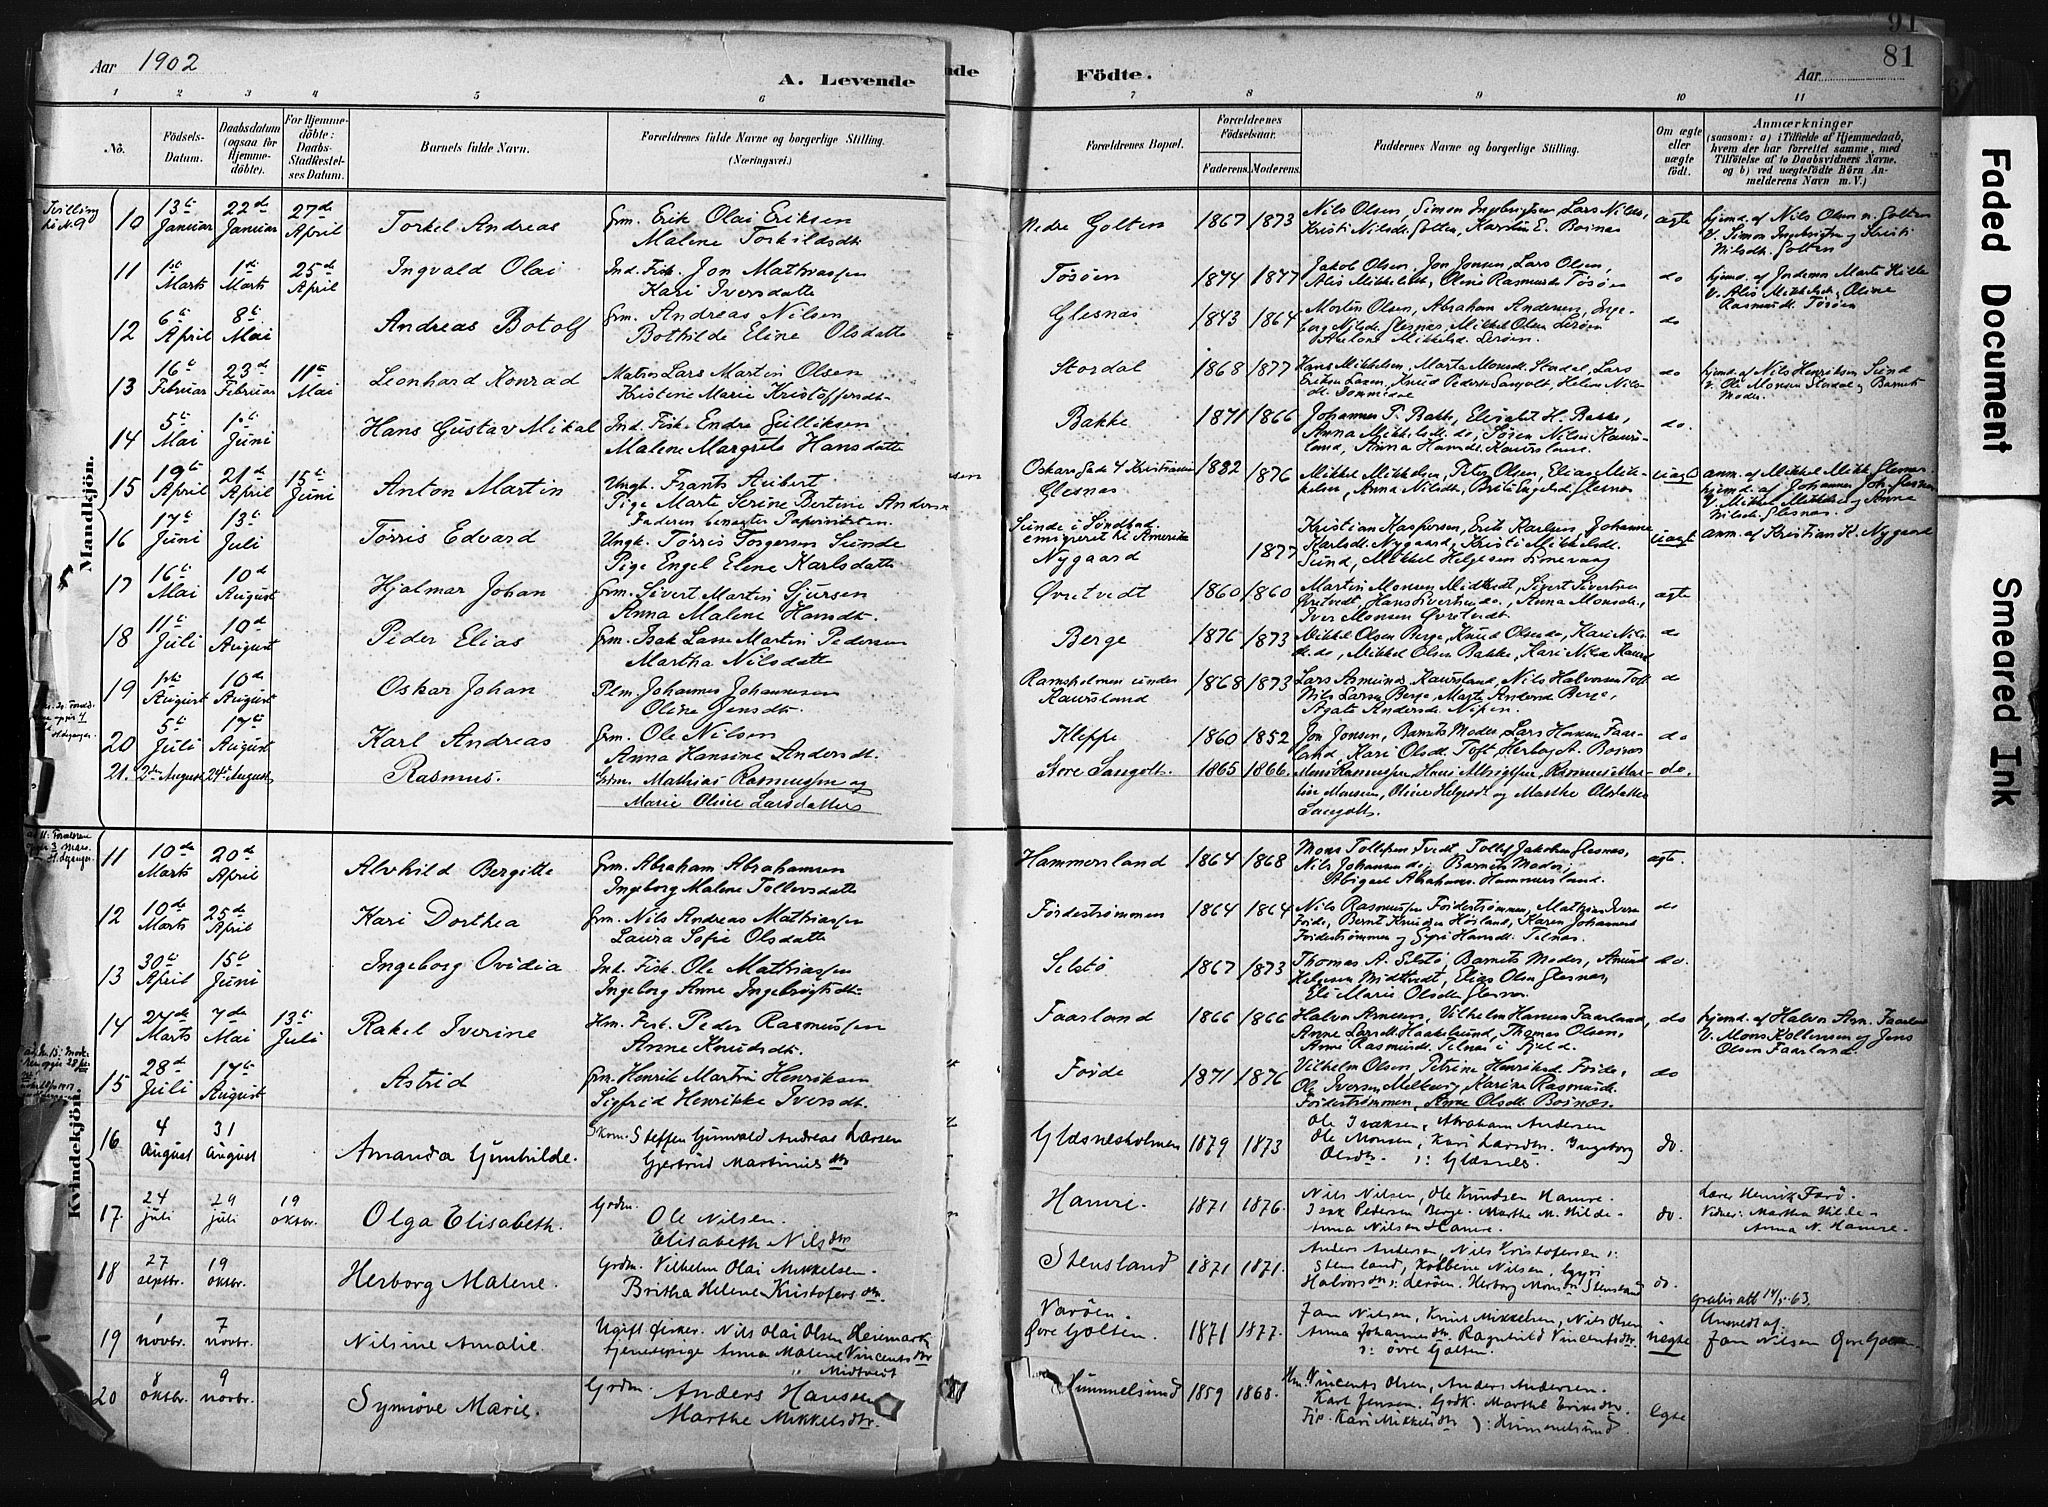 91
81
Aar 1902
A. Levende
nde
Födte.
Aar
1 2 3 4 5 6 7 8 9 10 11
Nô.
Födsels-
Datum.
Daabsdatum
(ogsaa for
Hjemme-
döbte).
For Hjemme-
döbte:
Daabs-
Stadfæstel-
ses Datum.
Barnets fulde Navn.
Forældrenes fulde Navne og borgerlige Stilling.
(Næringsvei.)
Forældrenes Bopæl.
Forældrenes
Födselsaar.
Faderens. Moderens.
Faddernes Navne og borgerlige Stilling.
Om ægte
eller
uægte
födt.
Anmærkninger
(saasom: a) i Tilfælde af Hjemmedaab,
hvem der har forrettet samme, med
Tilföielse af to Daabsvidners Navne.
og b) ved uægtefödte Börn An-
melderens Navn m. V.)
Mandkjön.
10 13de Januar 22de Januar 27de April Torkel Andreas Grm. Erik Olai Eriksen
Malene Torkildsdt.
Nedre Golten 1867 1873 Nils Olsen, Simon Ingebrigtsen, Lars Nilsen,
Kristi Nilsdt. Golten, Karstin E. Boinæs ægte
hjemd. af Nils Olsen n. Golten
V. Simon Ingebrigtsen og Kristi
Nilsdt. Golten
11 1ste Marts 1ste Marts 25de April Ingvald Olai Ind. Fisk. Jon Mathiassen
Kari Iversdatte
Tösöen 1874 1877 Jakob Olsen, Jon Jonsen, Lars Olsen,
Alis Mikkelsdt., Oline Rasmusdt. Tösöen do
12 6te April 8de Mai Andreas Botolf Grm. Andreas Nilsen
Bothilde Eline Olsdatte
Glesnæs 1843 1864 Morten Olsen, Abraham Andersen, Inge-
borg Nilsdt. Glesnæs, Mikkel Olsen Leröen do
13 16de Februar 23de Februar 11te Mai Leonhard Konrad Matros Lars Martin Olsen
Kristine Marie Kristoffersdt.
Stordal 1868 1877 Hans Mikkelsen, Marta Monsdt. Stordal, Lars do
hjemd. af Nils Henriksen Sund
v. Ole Monsen Stordal og Barnets
Moder.
14 5te Mai 1ste Juni Hans Gustav Mikal Ind. Fisk. Endre Gulliksen
Malene Margrete Hansdatte
Bakke 1871 1866 Johannes P. Bakke, Elisabet H. Bakke,
Anna Mikkelsdt. do, Sören Nilsen Kaurs-
land, Anna Hansdt. Kaursland. do.
15 19de April 21de April 15de Juni Anton Martin Ungk. Frants Aubert
Pige Marte Serine Bertine Anders
Faderen benægter Paterniteten.
Oskars gade 4 Kristiania
Glesnæs 1882 1876 Mikkel Mikkelsen, Peter Olsen, Elias Mik-
kelsen, Anna Nilsdt., Brita Engelsdt. Glesnæs uægte
anm. af Mikkel Mikk. Glesnæs.
hjemd. af Johannes Joh. Glesnæs
V. Mikkel Mikkelsen og Anna
Nilsdt. Glesnæs.
16 17de Juni 13de Juli Torris Edvard Ungk. Törris Torgersen Sunde
Pige Engel Elene Karlsdatte
Sunde i Söndhord.
emigreret til Amerika
Nygaard 1877 Kristian Kaspersen, Erik Karlsen, Johanne
Karlsdt. Nygaard, Kristi Mikkelsdt.
Sund, Mikkel Helgesen Limevaag uægte
anm. af Kristian K. Nygaard
17 16de Mai 10de August Hjalmar Johan Grm. Sivert Martin Gjersen
Anna Malene Hansdt.
Övretvedt 1860 1860 Martin Monsen Midttvedt, Sjert Sivertsen
Övretvedt, Hans Sivertsen do., Anna Monsdt.,
Iver Monsen Övretvedt. ægte
18 11te Juli 10de August Peder Elias Grm. Isak Lasse Martin Pedersen
Martha Nilsdatte
Berge 1876 1873 Mikkel Olsen Berge, Knud Olsen do, Kari Nils-
dt. do, Mikkel Olsen Bakke, Kari Nilsdt. Kaursl. do
19 1ste August 10de August Oskar Johan Plm. Johannes Johannesen
Oline Jensdt.
Ramsholmen under
Kaursland 1868 1873 Lars Asmundsen Kaursland, Nils Halvorsen Toft
Nils Larsen Berge, Marta Andersdt. Berge,
Agate Andersdt. Nipen. do
20 5te Juli 17de August Karl Andreas Grm. Ole Nilsen
Anna Hansine Andersdt.
Kleppe 1860 1852 Jon Jonsen, Barnets Moder, Lars Hansen Faar-
land, Kari Olsdt. Toft, Herborg A. Boinæs do
21. 2de August 24de August Rasmus. Grdm. Mathias Rasmussen og
Marie Oline Larsdatter
Store Sangolt. 1865 1866. Mons Rasmussen, Hans Albrigtsen, Rasmus Mar-
tin Monsen, Oline Helgesdt. og Marthe Olsdatter
Sangolt. do.
Kvindekjön.
11 10de Marts 20de April Alvhild Bergitte Grm. Abraham Abrahamsen
Ingeborg Malene Tollevsdatte
Hammersland 1864 1868 Mons Tollefsen Tvedt, Tollef Jakobsen Glesnæs,
Nils Johansen do, Barnets Moder,
Abigael Abrahams. Hammersland. ægte.
12 10de Marts 25de April Kari Dorthea Grm. Nils Andreas Mathiassen
Laura Sofie Olsdatte
Förde­strömmen 1864 1864 Nils Rasmussen Fördeströmmen, Mathias Iversen
Förde, Bernt Knudsen Hörland, Karen Johannesd.
Fördeströmmen og Gyri Hansdt. Telnæs. do
13 30te April 15de Juni Ingeborg Ovidia Ind. Fisk. Ole Mathiassen
Ingeborg Anne Ingebrigtsdt.
Selstö 1867 1873 Thomas A. Selstö, Barnets Moder, Amund
Helgesen Midttvedt, Elias Olsen Glesnæs,
Eli Marie Olsdt. Glesnæs. do.
14 27de Marts 7de Mai 13de Juli Rakel Iverine Hm. Fisk. Peder Rasmussen
Anne Knudsdt.
Faarland 1866 1866 Halvor Arnesen, Vilhelm Hansen Faarland,
Anne Larsdt. Haakelsund, Thomas Olsen,
Anne Rasmusdt. Telnæs i Fjeld. do
hjemd. af Halvor Arn. Faarland
V. Mons Kolbensen og Jens
Olsen Faarland.
15 28de Juli 17de August Astrid Grm. Henrik Martin Henriksen
Sigfrid Henrikke Iversdt.
Förde 1871 1876 Vilhelm Olsen, Petrine Henriksd. Förde,
Ole Iversen Melkevig, Karine Rasmusdt.
Fördeströmmen, Anne Olsdt. Boinæs. do
16 4 August 31 August Amanda Gunhilde. Skom. Steffen Gunvald Andreas Larsen
Gjertrud Martinusdtr
Glesnesholmen 1879 1873 Ole Isaksen, Abraham Andersen
Ole Monsen, Kari Larsdtr. Ingeborg
Olsdtr. ): Glæsnes. do.
17. 24 juli 29 juli 19 oktbr. Olga Elisabeth. Grdm. Ole Nilsen.
Elisabeth Nilsdtr
Hamre. 1871 1876. Nils Nilsen, Ole Knudsen Hamre.
Isak Pedersen Berge. Marthe M. Hilde-
Anna Nilsen Hamre. do.
Lærer Henrik Farö.
Vidner: Martha Hilde-
Anna N. Hamre.
18 27 septbr. 19 oktbr. Herborg Malene. Grdm. Vilhelm Olai Mikkelsen.
Britha Helene Kristofersdtr.
Stensland 1871 1871. Anders Andersen, Nils Kristofersen ):
Stensland, Kolbene Nilsen, Gyri
Halvorsdtr ): Leröen. Herborg Monsdtr Stensland do.
gratis att 14/5-63.
19 1 novbr. 7 novbr. Nilsine Amalie. Ugift fisker. Nils Olai Olsen Heiemark
tjenestepige Anna Malene Vincentsdtr
Midtvedt
Varöen
Övre Golten. 1871 1877. Jan Nilsen, Knut Mikkelsen, Nils Olsen
Anna Johannesdtr. Ragnhild Vincentsdtr
): övre Golten. uægte
Anmeldt af.
Jan Nilsen Övre Golten
20 8 oktbr. 9 novbr. Synnöve Marie. Grdm. Anders Hanssen
Marthe Mikkelsdtr.
Hummelsund 1859 1868. Hm. Vincents Olsen, Anders Andersen.
Karl Jensen. Grdk. Marthe Eriksdtr.
Pip. Kari Mikkelsdtr ): Hummelsund. Egte
Faded Document
Smeared Ink